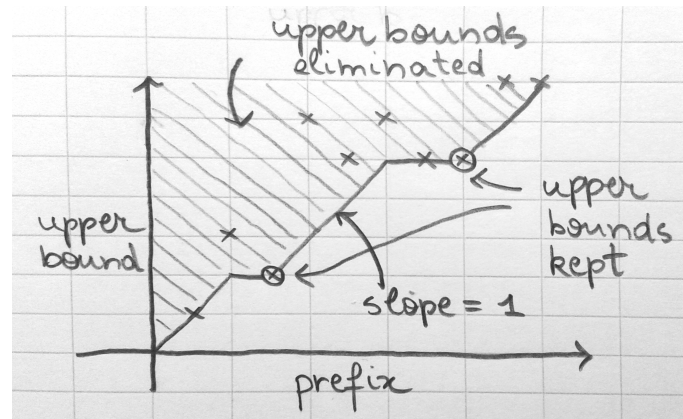 upper bounds
eliminated
upper
bound
upper
bounds
kept
slope = 1
prefix